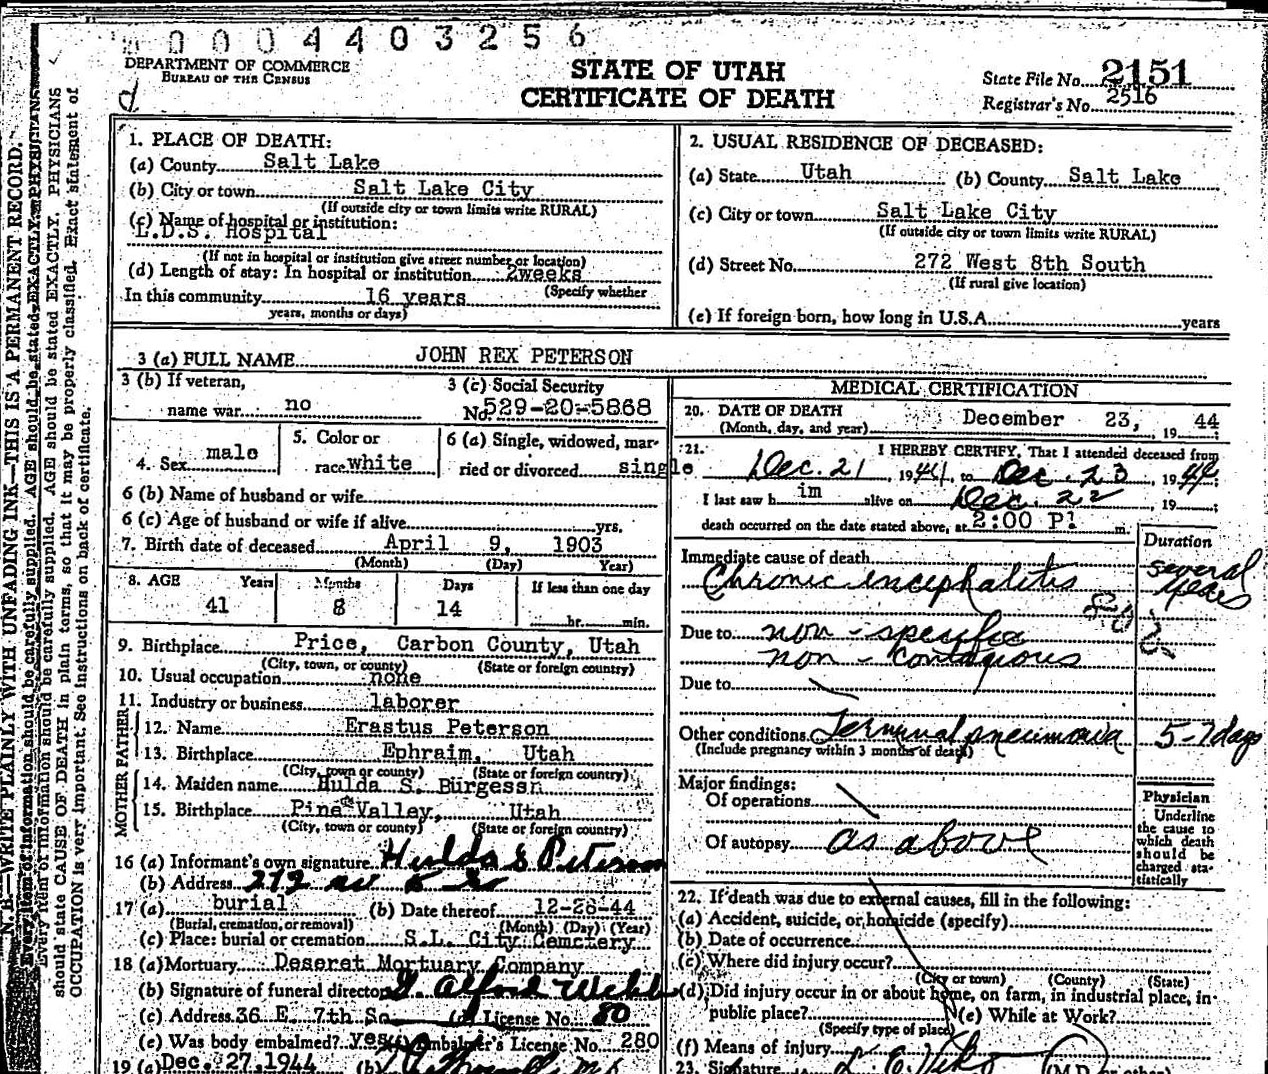 0004403256
DEPARTMENT OF COMMERCE
BUREAU OF THE CENSUS
d
STATE OF UTAH
CERTIFICATE OF DEATH
State File No. 2151
Registrar's No. 2516
1. PLACE OF DEATH:
(a) County Salt Lake
(b) City or town Salt Lake City
(If outside city or town limits write RURAL)
(c) Name of hospital or institution:
L.D.S. Hospital
(If not in hospital or institution give street number or location)
(d) Length of stay: In hospital or institution 2weeks
(Specify whether
In this community 16 years
years, months or days)
2. USUAL RESIDENCE OF DECEASED:
(a) State Utah (b) County Salt Lake
(c) City or town Salt Lake City
(If outside city or town limits write RURAL)
(d) Street No. 272 West 8th South
(If rural give location)
(e) If foreign born, how long in U.S.A. years
3 (a) FULL NAME JOHN REX PETERSON
3 (b) If veteran,
name war no
3 (c) Social Security
No. 529-20-5868
4. Sex male
5. Color or
race white
6 (a) Single, widowed, mar-
ried or divorced single
6 (b) Name of husband or wife
6 (c) Age of husband or wife if alive yrs.
7. Birth date of deceased April 9, 1903
(Month) (Day) Year)
8. AGE Years Months Days If less than one day
41 8 14 hr. min.
9. Birthplace Price, Carbon County, Utah
(City, town, or county) (State or foreign country)
10. Usual occupation none
11. Industry or business laborer
FATHER
12. Name Erastus Peterson
13. Birthplace Ephraim, Utah
(City, town or county) (State or foreign country)
MOTHER
14. Maiden name Hulda S. Burgess
15. Birthplace Pine Valley, Utah
(City, town or county) (State or foreign country)
16 (a) Informant's own signature Hulda S Peterson
(b) Address
17 (a) burial (b) Date thereof 12-26-44
(Burial, cremation, or removal) (Month) (Day) (Year)
(c) Place: burial or cremation S.L. City Cemetery
18 (a) Mortuary Deseret Mortuary Company
(b) Signature of funeral director Alford Webb
(c) Address 36 E. 7th So (d) License No. 80
(e) Was body embalmed? yes (f) Embalmer's License No. 280
19 (a) Dec. 27,1944 (b)
MEDICAL CERTIFICATION
20. DATE OF DEATH December 23, 1944;
(Month, day, and year)
21. I HEREBY CERTIFY, That I attended deceased from
Dec. 21, 1944, to Dec. 23, 1944;
I last saw him alive on Dec. 22, 19
death occurred on the date stated above, at 2:00 P m.
Duration
Immediate cause of death
Chronic encephalitis several years
Due to non-specific
non-contagious
Due to
Other conditions Terminal pneumonia 5-7 days
(Include pregnancy within 3 months of death)
Major findings:
Of operations
Of autopsy as above
Physician
Underline
the cause to
which death
should be
charged sta-
tistically
22. If death was due to external causes, fill in the following:
(a) Accident, suicide, or homicide (specify)
(b) Date of occurrence
(c) Where did injury occur?
(City or town) (County) (State)
(d) Did injury occur in or about home, on farm, in industrial place, in
public place? (e) While at Work?
(Specify type of place)
(f) Means of injury
23. Signature (M.D. or other)
N. B.—WRITE PLAINLY WITH UNFADING INK—THIS IS A PERMANENT RECORD.
Every item of information should be carefully supplied. AGE should be stated EXACTLY. PHYSICIANS
should state CAUSE OF DEATH in plain terms, so that it may be properly classified. Exact statement of
OCCUPATION is very important. See instructions on back of certificate.